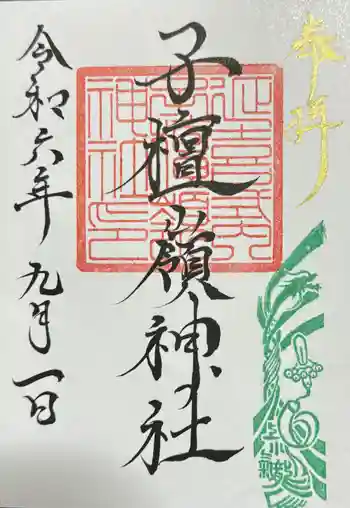 奉拝
子檀嶺神社
令和六年九月一日